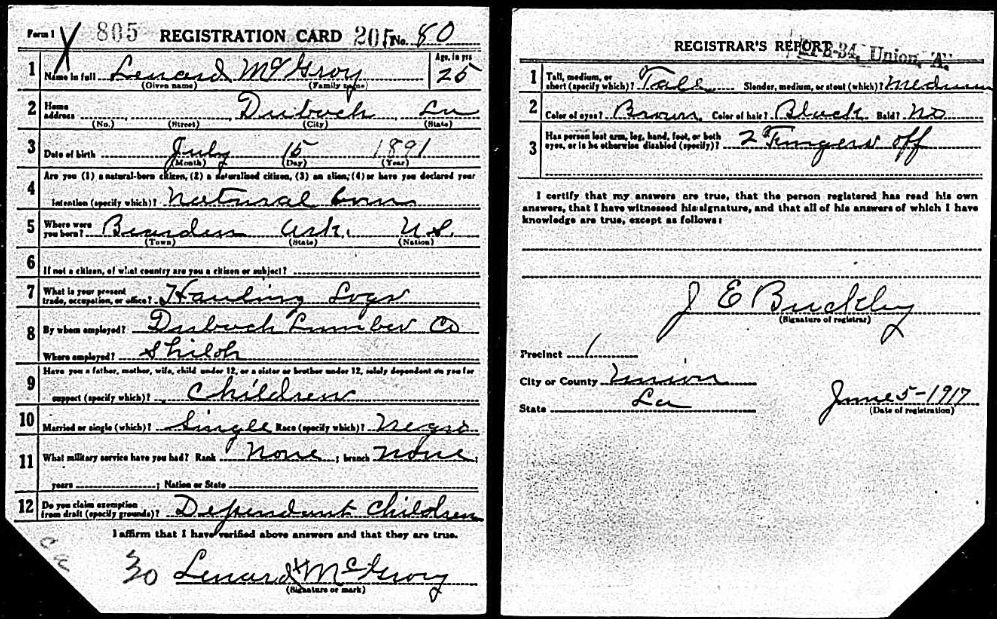 Form 1 805 REGISTRATION CARD 205 No. 80
1 Name in full Lenard McGroy Age, in yrs 25
(Given name) (Family name)
2 Home address Dubach La
(No.) (Street) (City) (State)
3 Date of birth July 15 1891
(Month) (Day) (Year)
4 Are you (1) a natural-born citizen, (2) a naturalized citizen, (3) an alien, (4) or have you declared your
intention (specify which)? Natural born
5 Where were you born? Bearden Ark. U.S.
(Town) (State) (Nation)
6 If not a citizen, of what country are you a citizen or subject?
7 What is your present trade, occupation, or office? Hauling Logs
8 By whom employed? Dubach Lumber Co
Where employed? Shiloh
9 Have you a father, mother, wife, child under 12, or a sister or brother under 12, solely dependent on you for
support (specify which)? Children
10 Married or single (which)? Single Race (specify which)? Negro
11 What military service have you had? Rank None ; branch None ;
years ; Nation or State
12 Do you claim exemption from draft (specify grounds)? Dependent Children
I affirm that I have verified above answers and that they are true.
30 Lenard McGroy
(Signature or mark)
REGISTRAR'S REPORT Union, A.
1 Tall, medium, or short (specify which)? Tall Slender, medium, or stout (which)? Medium
2 Color of eyes? Brown Color of hair? Black Bald? No
3 Has person lost arm, leg, hand, foot, or both eyes, or is he otherwise disabled (specify)? 2 Fingers off
I certify that my answers are true, that the person registered has read his own
answers, that I have witnessed his signature, and that all of his answers of which I have
knowledge are true, except as follows:
J E Buckley
(Signature of registrar)
Precinct 1
City or County Union
State La June 5-1917
(Date of registration)